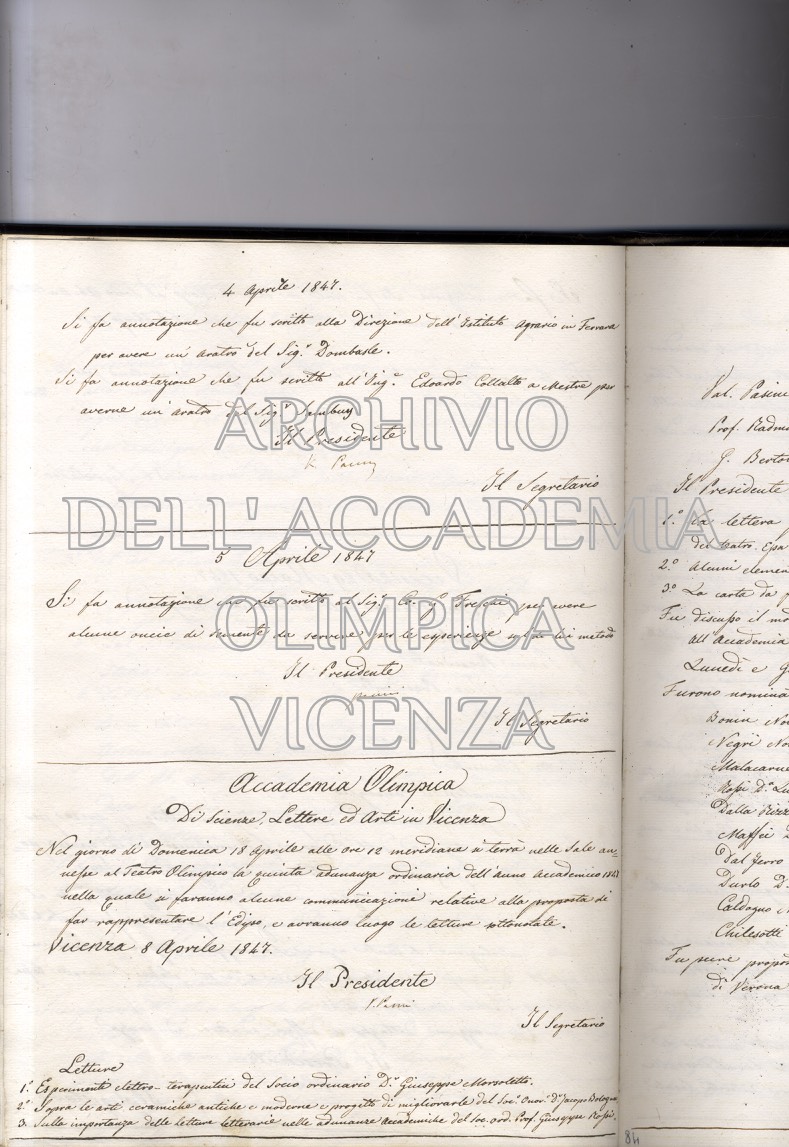 4 Aprile 1847.
Si fa annotazione che fu scritto alla Direzione dell'Istituto Agrario in Ferrara
per avere un aratro del Sig.r Dombasle.
Si fa annotazione che fu scritto all'Ing.r Edoardo Collalto a Mestre per
averne un aratro del Sig.r
Il Presidente
Il Segretario
5 Aprile 1847
Si fa annotazione che fu scritto al Sig.r Co. G. Freschi per avere
alcune oncie di semente da servire per le esperienze sul di lui metodo
Il Presidente
Il Segretario
Accademia Olimpica
Di Scienze, Lettere ed Arti in Vicenza
Nel giorno di Domenica 18 Aprile alle ore 12 meridiane si terrà nelle Sale an=
nesse al Teatro Olimpico la quinta adunanza ordinaria dell'Anno Accademico 1847
nella quale si faranno alcune communicazioni relative alla proposta di
far rappresentare l'Edipo, e avranno luogo le letture sottonotate.
Vicenza 8 Aprile 1847.
Il Presidente
Il Segretario
Letture
1.° Esperimenti elettro-terapeutici del Socio ordinario D.r Giuseppe Morsoletto.
2.° Sopra le arti ceramiche antiche e moderne e progetti di migliorarle del Soc.° Onor.° D.r Jacopo Bologna
3. Sulla importanza delle letture letterarie nelle adunanze accademiche del soc. ord. Prof. Giuseppe Rossi.
Val. Pasini
Prof.
G.
Il Presidente
1.° La lettera
del teatro.
2.° Alcuni
3.° La carta da
Fu discusso il
all'Accademia
Lunedì e
Furono
Bonin
Negri
Malacarne
Rossi D.r
Dalla
Maffei
Dal Ferro
Durlo D.
Caldogno
Chilesotti
Fu pure
di Verona
48
ARCHIVIO
DELL'ACCADEMIA
OLIMPICA
VICENZA